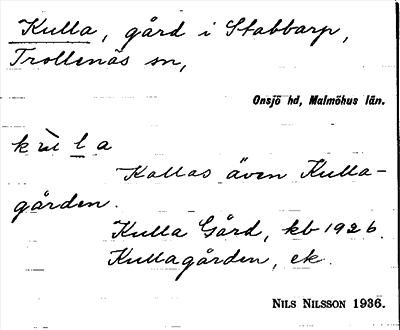 Kulla, gård i Stabbarp,
Trollenäs sn,
Onsjö hd, Malmöhus län.
kùla
Kallas även Kulla-
gården.
Kulla Gård, kb 1926.
Kullagården, ek.
NILS NILSSON 1936.